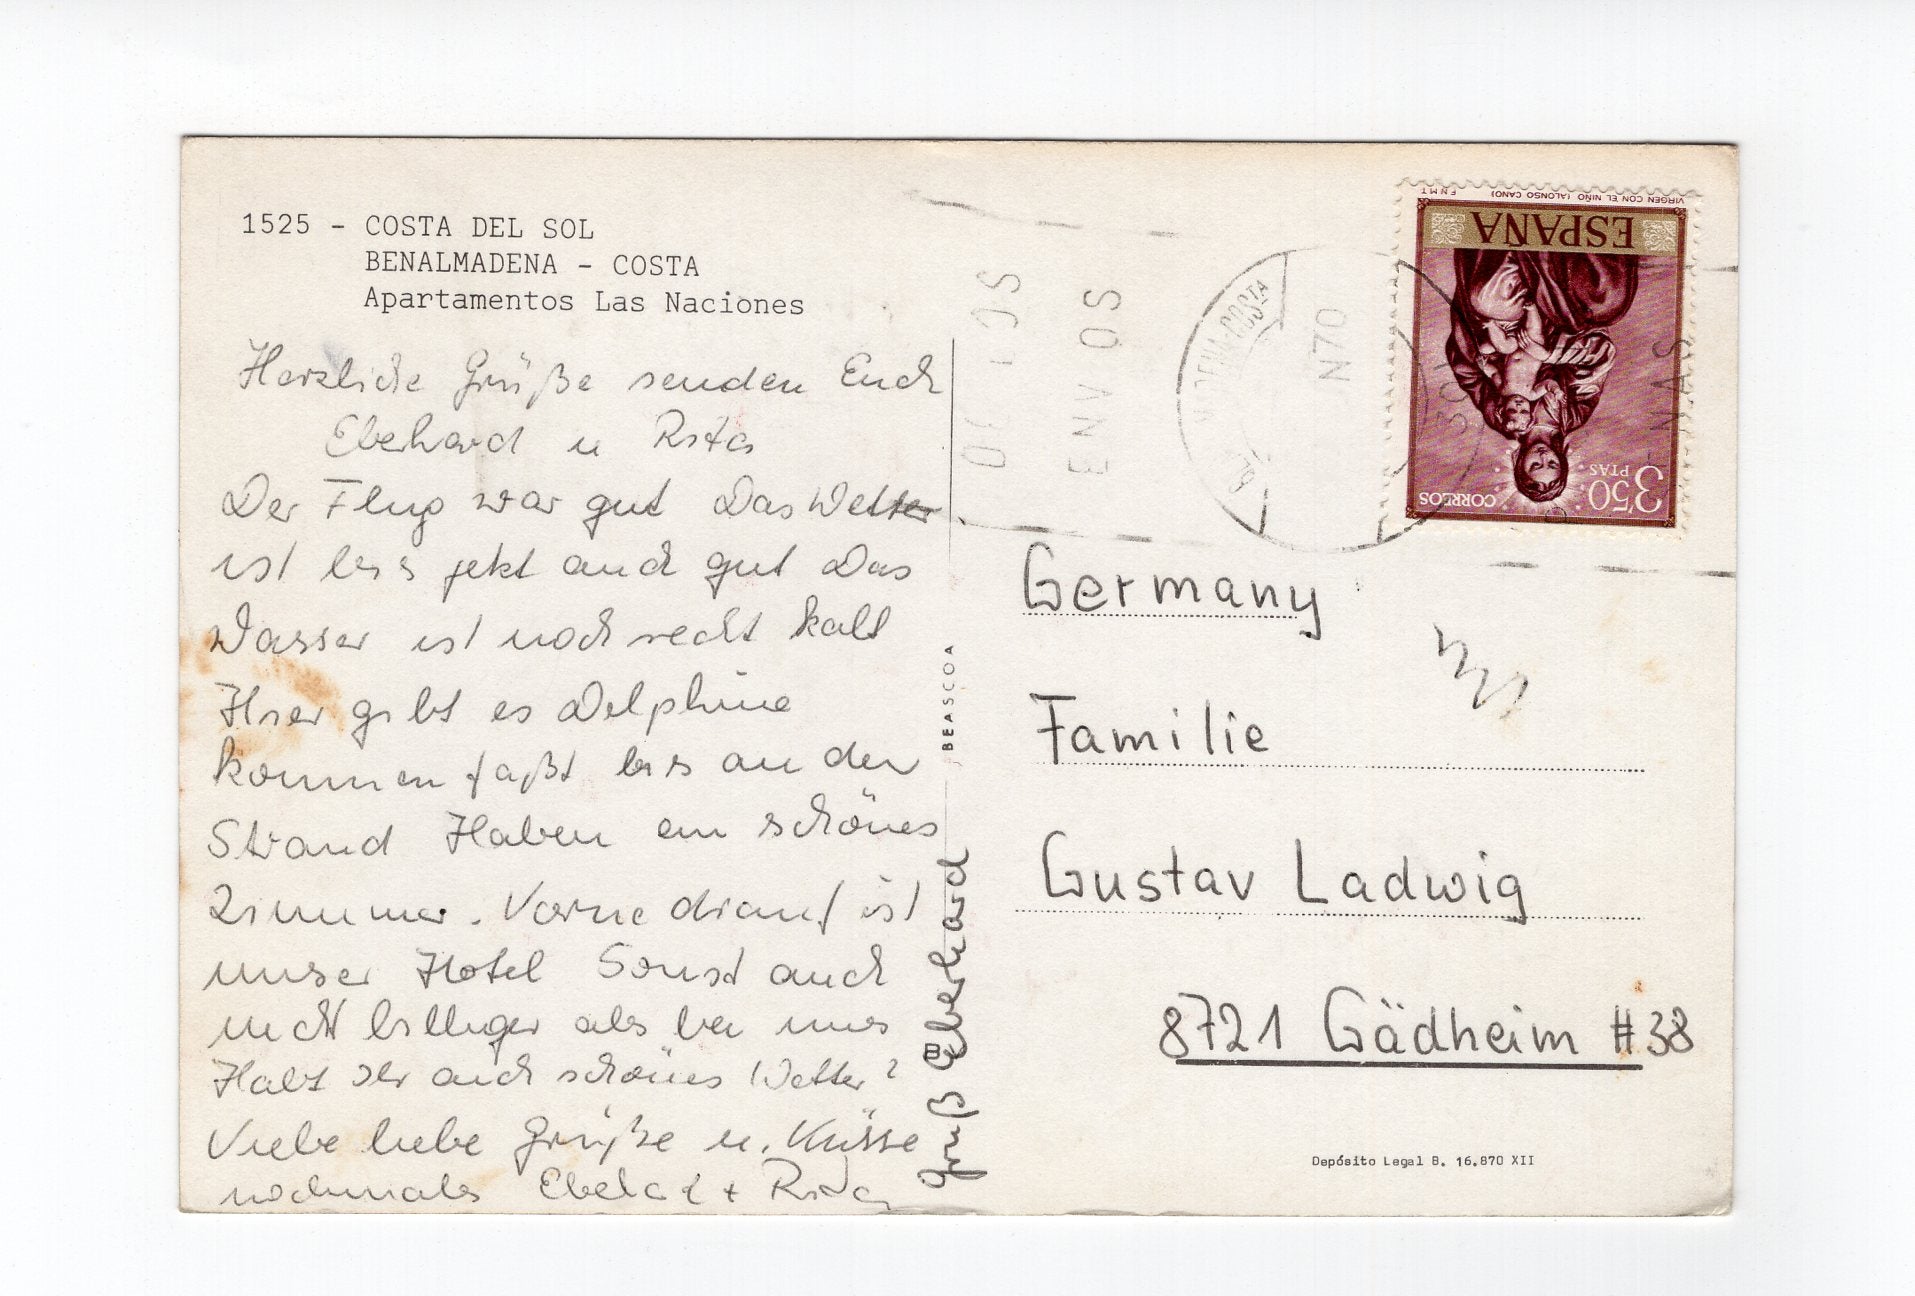 1525 - COSTA DEL SOL
BENALMADENA - COSTA
Apartamentos Las Naciones
Herzliche Grüße senden Euch
Eberhard u Rita
Der Flug war gut Das Wetter
ist bis jetzt auch gut Das
Wasser ist noch recht kalt
Hier gibt es Delphine
kommen faßt bis an den
Strand Haben ein schönes
Zimmer. Vorne drauf ist
unser Hotel Sonst auch
nicht billiger als bei uns
Habt Ihr auch schönes Wetter?
Viele liebe Grüße u. Küsse
nochmals Eberhard + Rita
Gruß Eberhard
BEASCOA
B
VIRGEN CON EL NIÑO (ALONSO CANO)
F.N.M.T.
ESPAÑA
3'50
PTAS
CORREOS
COSTA
N70
ENV OS
Germany
Familie
Gustav Ladwig
8721 Gädheim #38
Depósito Legal B. 16.870 XII